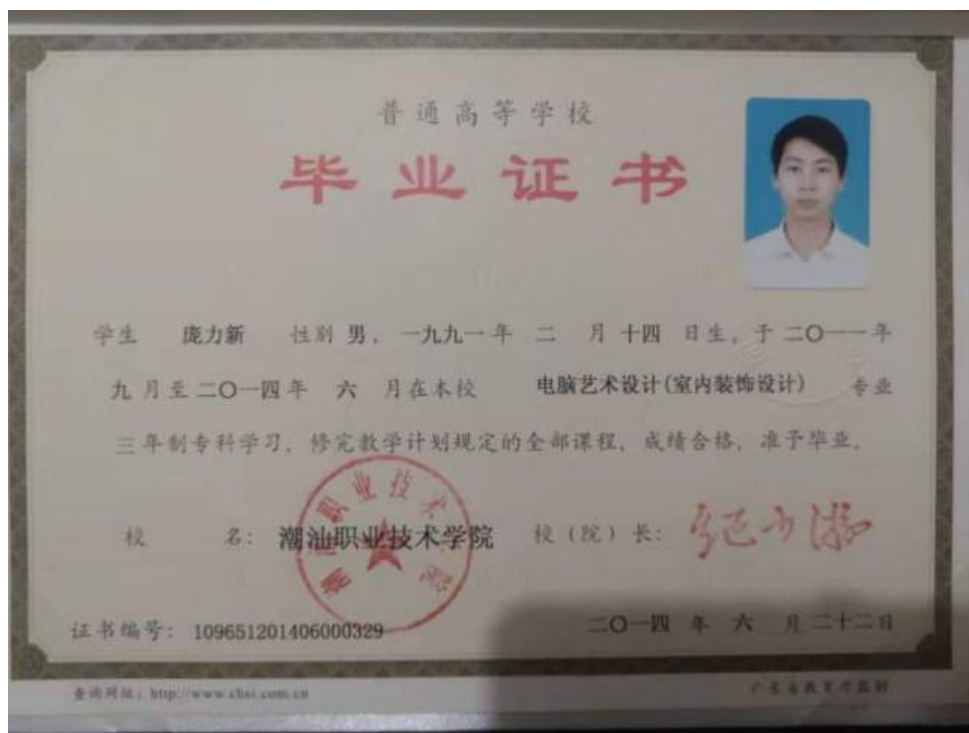 普通高等学校
毕业证书
学生 庞力新 性别 男，一九九一年 二 月 十四 日生，于 二〇一一年
九 月至 二〇一四 年 六 月在本校 电脑艺术设计(室内装饰设计) 专业
三年制专科学习，修完教学计划规定的全部课程，成绩合格，准予毕业。
校 名： 潮汕职业技术学院 校（院）长：
潮汕职业技术学院
证书编号： 109651201406000329 二〇一四 年 六 月 二十二日
查询网址：http://www.chsi.com.cn 广东省教育厅监制